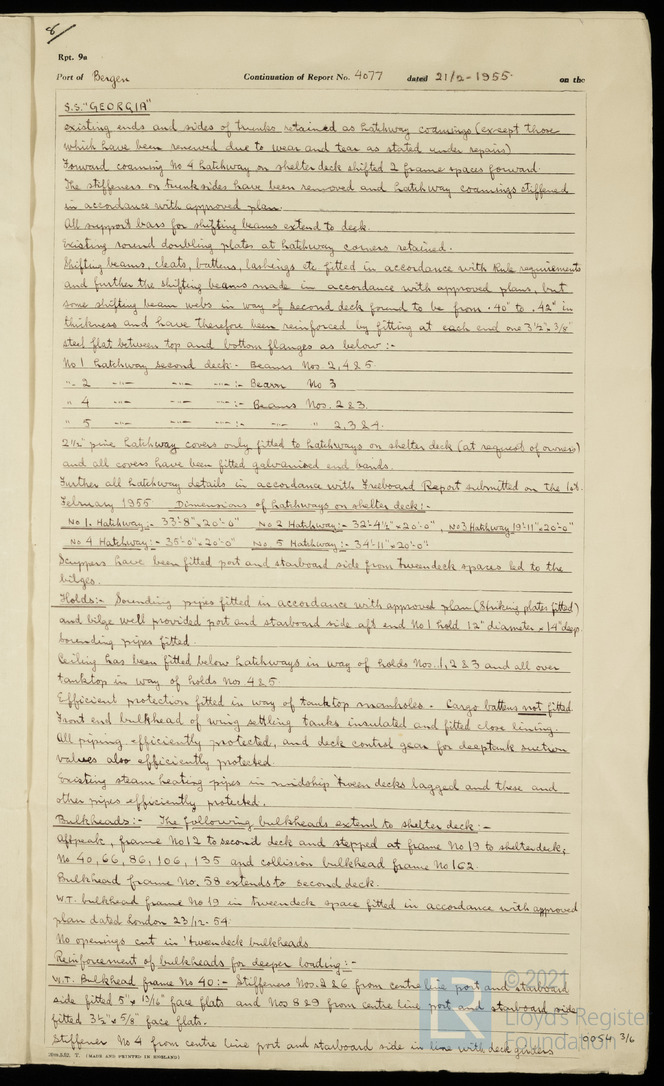 8/
Rpt. 9a
Port of Bergen Continuation of Report No. 4077 dated 21/2-1955. on the
S.S. "GEORGIA"
existing ends and sides of trunks retained as hatchway coamings (except those
which have been renewed due to wear and tear as stated under repairs)
Forward coaming No 4 hatchway on shelter deck shifted 2 frame spaces forward.
The stiffeness on trunksides have been removed and hatchway coamings stiffened
in accordance with approved plan.
All support bars for shifting beams extend to deck.
Existing round doubling plates at hatchway corners retained.
Shifting beams, cleats, battens, lashings etc fitted in accordance with Rule requirements
and further the shifting beams made in accordance with approved plans, but
some shifting beam webs in way of second deck found to be from .40" to .42" in
thickness and have therefore been reinforced by fitting at each end one 3½" × 3/8"
steel flat between top and bottom flanges as below:-
No 1 hatchway second deck:- Beams Nos 2, 4 & 5.
" 2 -"- -"- -"- :- Beam No 3
" 4 -"- -"- -"- :- Beams Nos. 2 & 3.
" 5 -"- -"- -"- :- -"- " 2, 3 & 4.
2½" pine hatchway covers only fitted to hatchways on shelter deck (at request of owners)
and all covers have been fitted galvanised end bands.
Further all hatchway details in accordance with Freeboard Report submitted on the 1st.
February 1955 Dimensions of hatchways on shelter deck:-
No 1. Hatchway:- 33'-8" × 20'-0" No 2 Hatchway:- 32'-4½" × 20'-0", No 3 Hatchway 19'-11" × 20'-0"
No 4 Hatchway:- 35'-0" × 20'-0" No. 5 Hatchway:- 34'-11" × 20'-0"
Scuppers have been fitted port and starboard side from tweendeck spaces led to the
bilges.
Holds:- Sounding pipes fitted in accordance with approved plan (Striking plates fitted)
and bilge well provided port and starboard side aft end No 1 hold 12" diameter × 14" deep,
sounding pipes fitted.
Ceiling has been fitted below hatchways in way of holds Nos. 1, 2 & 3 and all over
tanktop in way of holds Nos 4 & 5.
Efficient protection fitted in way of tanktop manholes - Cargo battens not fitted.
Front end bulkhead of wing settling tanks insulated and fitted close lining.
All piping efficiently protected, and deck control gear for deeptank suction
valves also efficiently protected.
Existing steam heating pipes in midship 'tween decks lagged and these and
other pipes efficiently protected.
Bulkheads:- The following bulkheads extend to shelter deck:-
Aftpeak, frame No 12 to second deck and stepped at frame No 19 to shelterdeck,
No 40, 66, 86, 106, 135 and collision bulkhead frame No 162.
Bulkhead frame No. 58 extends to second deck.
W.T. bulkhead frame No 19 in tweendeck space fitted in accordance with approved
plan dated London 23/12-54.
No openings cut in 'tweendeck bulkheads
Reinforcement of bulkheads for deeper loading:-
W.T. Bulkhead frame No 40:- Stiffeness Nos. 2 & 6 from centre line port and starboard
side fitted 5" × 13/16" face flats and Nos 8 & 9 from centre line port and starboard side
fitted 3½" × 5/8" face flats.
Stiffener No 4 from centre line port and starboard side in line with deck girders
T. (MADE AND PRINTED IN ENGLAND)
0054 3/6
LR
© 2021
Lloyd's Register
Foundation